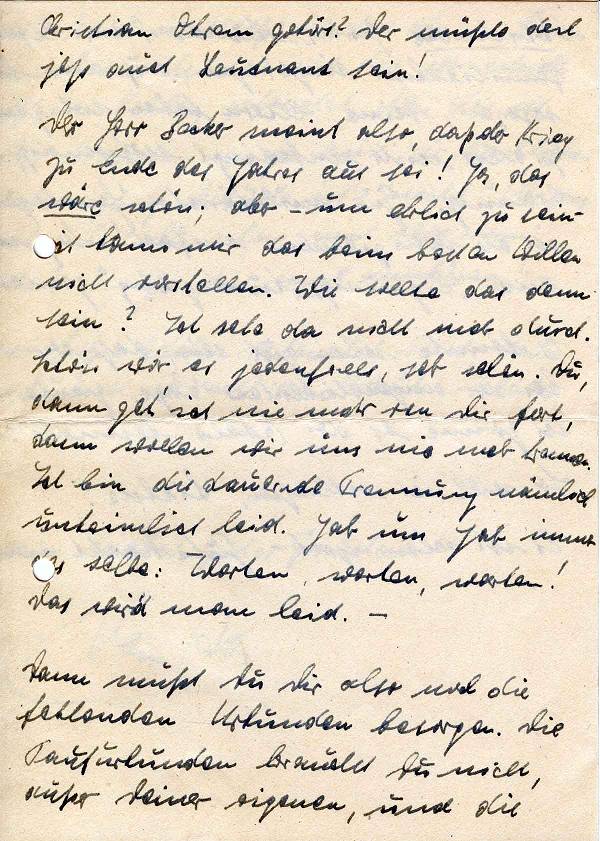 Christian Otram gehört? Der müßte doch
jetzt auch Leutnant sein!
Der Herr Becker meint also, daß der Krieg
zu Ende des Jahres aus sei! Ja, das
wäre schön; aber – um ehrlich zu sein –
ich kann mir das beim besten Willen
nicht vorstellen. Wie sollte das denn
sein? Ich sehe da nicht mehr durch.
Schön wär es jedenfalls, sehr schön. Du,
dann geh' ich nie mehr von Dir fort,
dann wollen wir uns nie mehr trennen.
Ich bin die dauernde Trennung nämlich
unheimlich leid. Jahr um Jahr immer
das selbe: Warten, warten, warten!
Das wird man leid. –
Dann mußt Du Dir also noch die
fehlenden Urkunden besorgen. Die
Taufurkunden brauchst Du nicht,
außer Deiner eigenen, und die